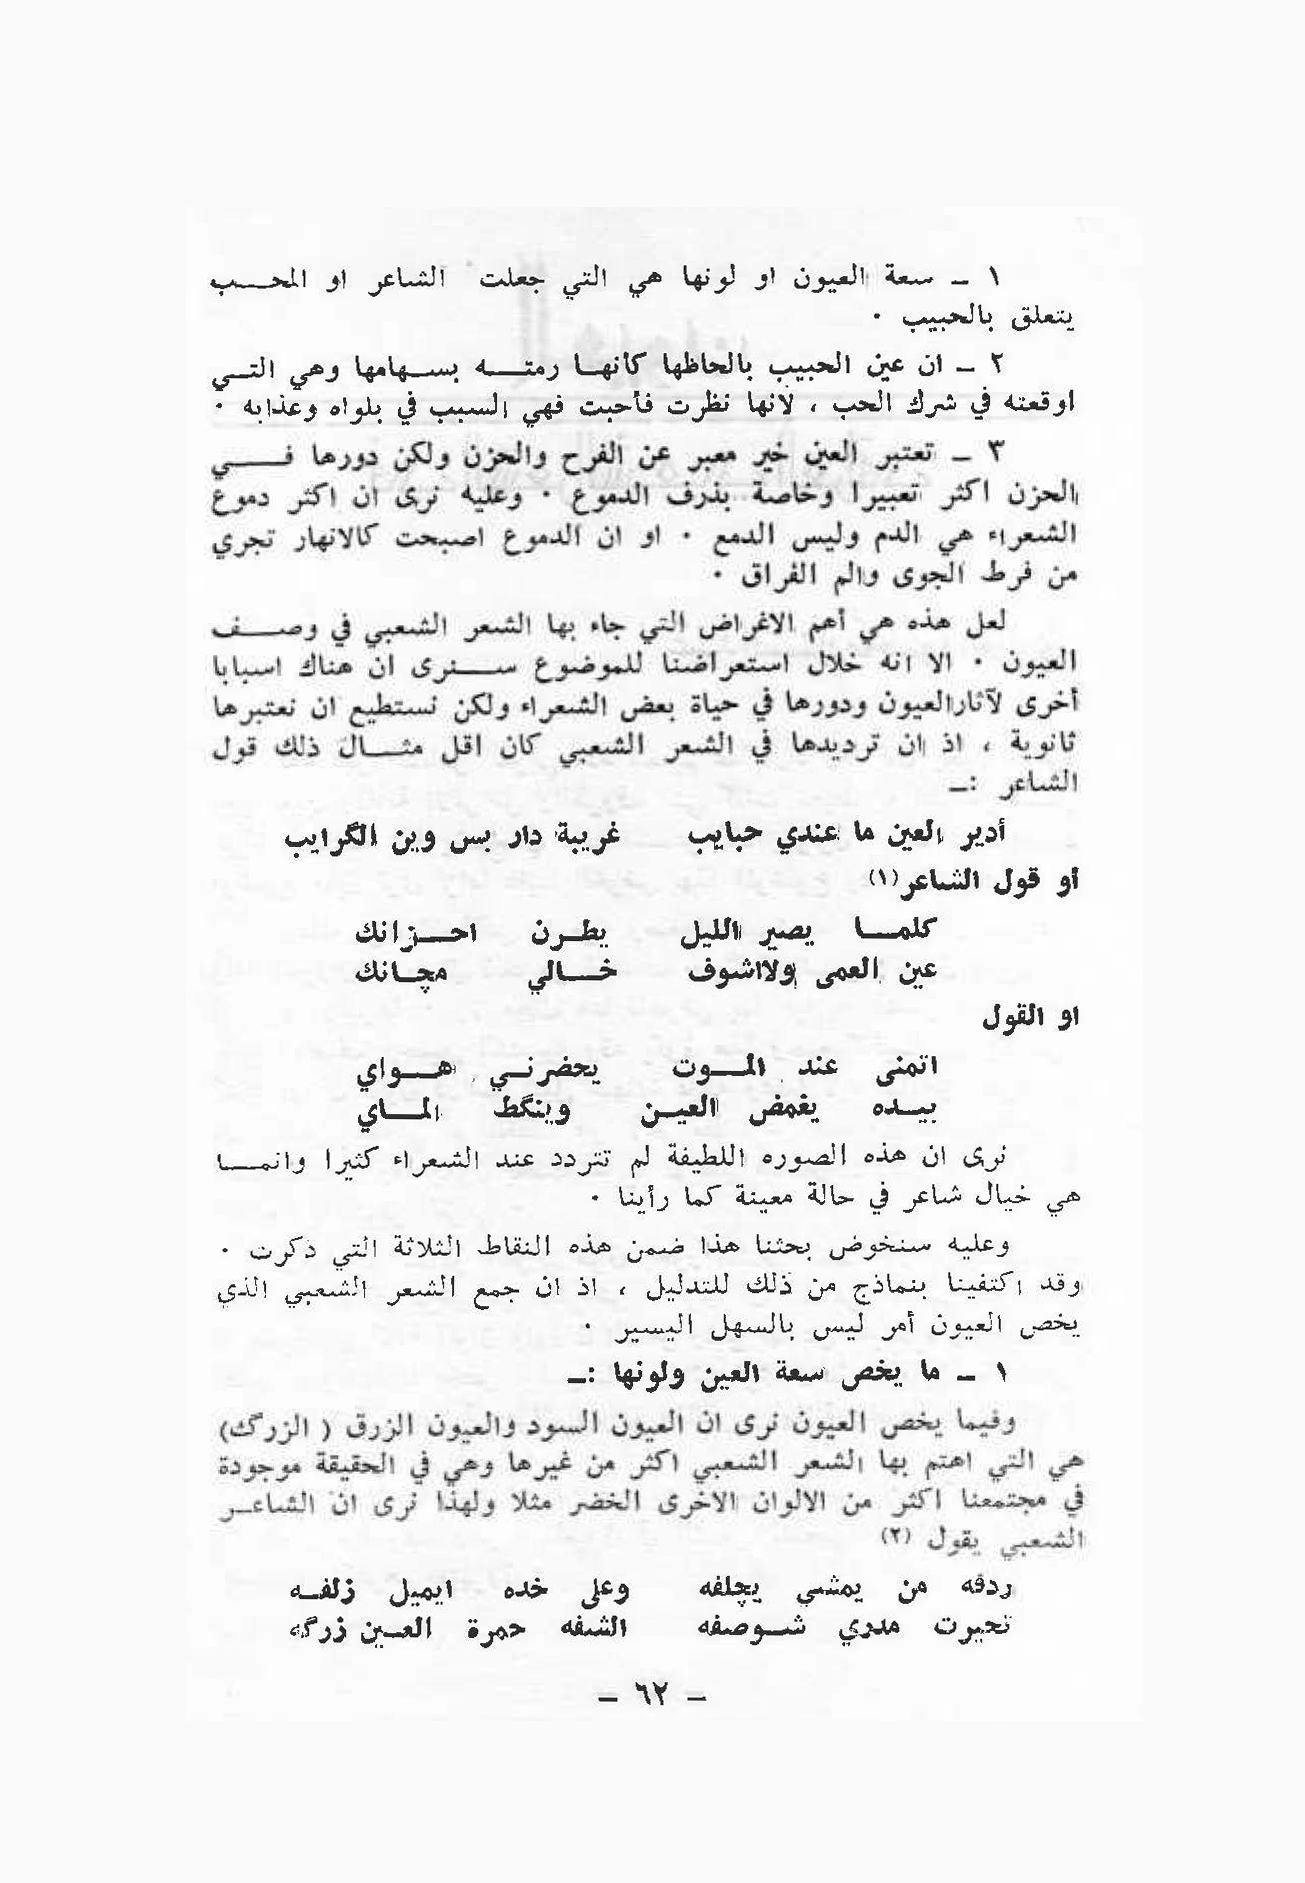 ١ ــ سعة العيون او لونها هي التي جعلت الشاعر او المحـــب
يتعلق بالحبيب ٠
٢ ــ ان عين الحبيب بالحاظها كأنهـا رمتـــه بســهامها وهي التــي
اوقعته في شرك الحب ، لانها نظرت فأحبت فهي السبب في بلواه وعذابه ٠
٣ ــ تعتبر العين خير معبر عن الفرح والحزن ولكن دورها فــــي
الحزن اكثر تعبيرا وخاصة بذرف الدموع ٠ وعليه نرى ان اكثر دموع
الشعراء هي الدم وليس الدمع ٠ او ان الدموع اصبحت كالانهار تجري
من فرط الجوى والم الفراق ٠
لعل هذه هي أهم الاغراض التي جاء بها الشعر الشعبي في وصـــف
العيون ٠ الا انه خلال استعراضنا للموضوع ســـنرى ان هناك اسبابا
أخرى لآثارالعيون ودورها في حياة بعض الشعراء ولكن نستطيع ان نعتبرها
ثانوية ، اذ ان ترديدها في الشعر الشعبي كان اقل مثـــال ذلك قول
الشاعر :ــ
أدير العين ما عندي حبايب غريبة دار بس وين الگرايب
أو قول الشاعر(١)
كلمـــا يصير الليل يطــرن احـــزانك
عين العمى ولااشوف خـــالي مچـانك
او القول
اتمنى عند المـــوت يحضرنــي هـــواي
بيــده يغمض العيــن وينگط المـــاي
نرى ان هذه الصوره اللطيفة لم تتردد عند الشعراء كثيرا وانمـــا
هي خيال شاعر في حالة معينة كما رأينا ٠
وعليه سنخوض بحثنا هذا ضمن هذه النقاط الثلاثة التي ذكرت ٠
وقد اكتفينا بنماذج من ذلك للتدليل ، اذ ان جمع الشعر الشعبي الذي
يخص العيون أمر ليس بالسهل اليسير ٠
١ ــ ما يخص سعة العين ولونها :ــ
وفيما يخص العيون نرى ان العيون السود والعيون الزرق ( الزرگ)
هي التي اهتم بها الشعر الشعبي اكثر من غيرها وهي في الحقيقة موجودة
في مجتمعنا اكثر من الالوان الاخرى الخضر مثلا ولهذا نرى ان الشاعــر
الشعبي يقول (٢)
ردفه من يمشي يچلفه وعلى خده ايميل زلفــه
تحيرت مدري شــوصفه الشفه حمرة العــين زرگه
ــ ٦٢ ــ